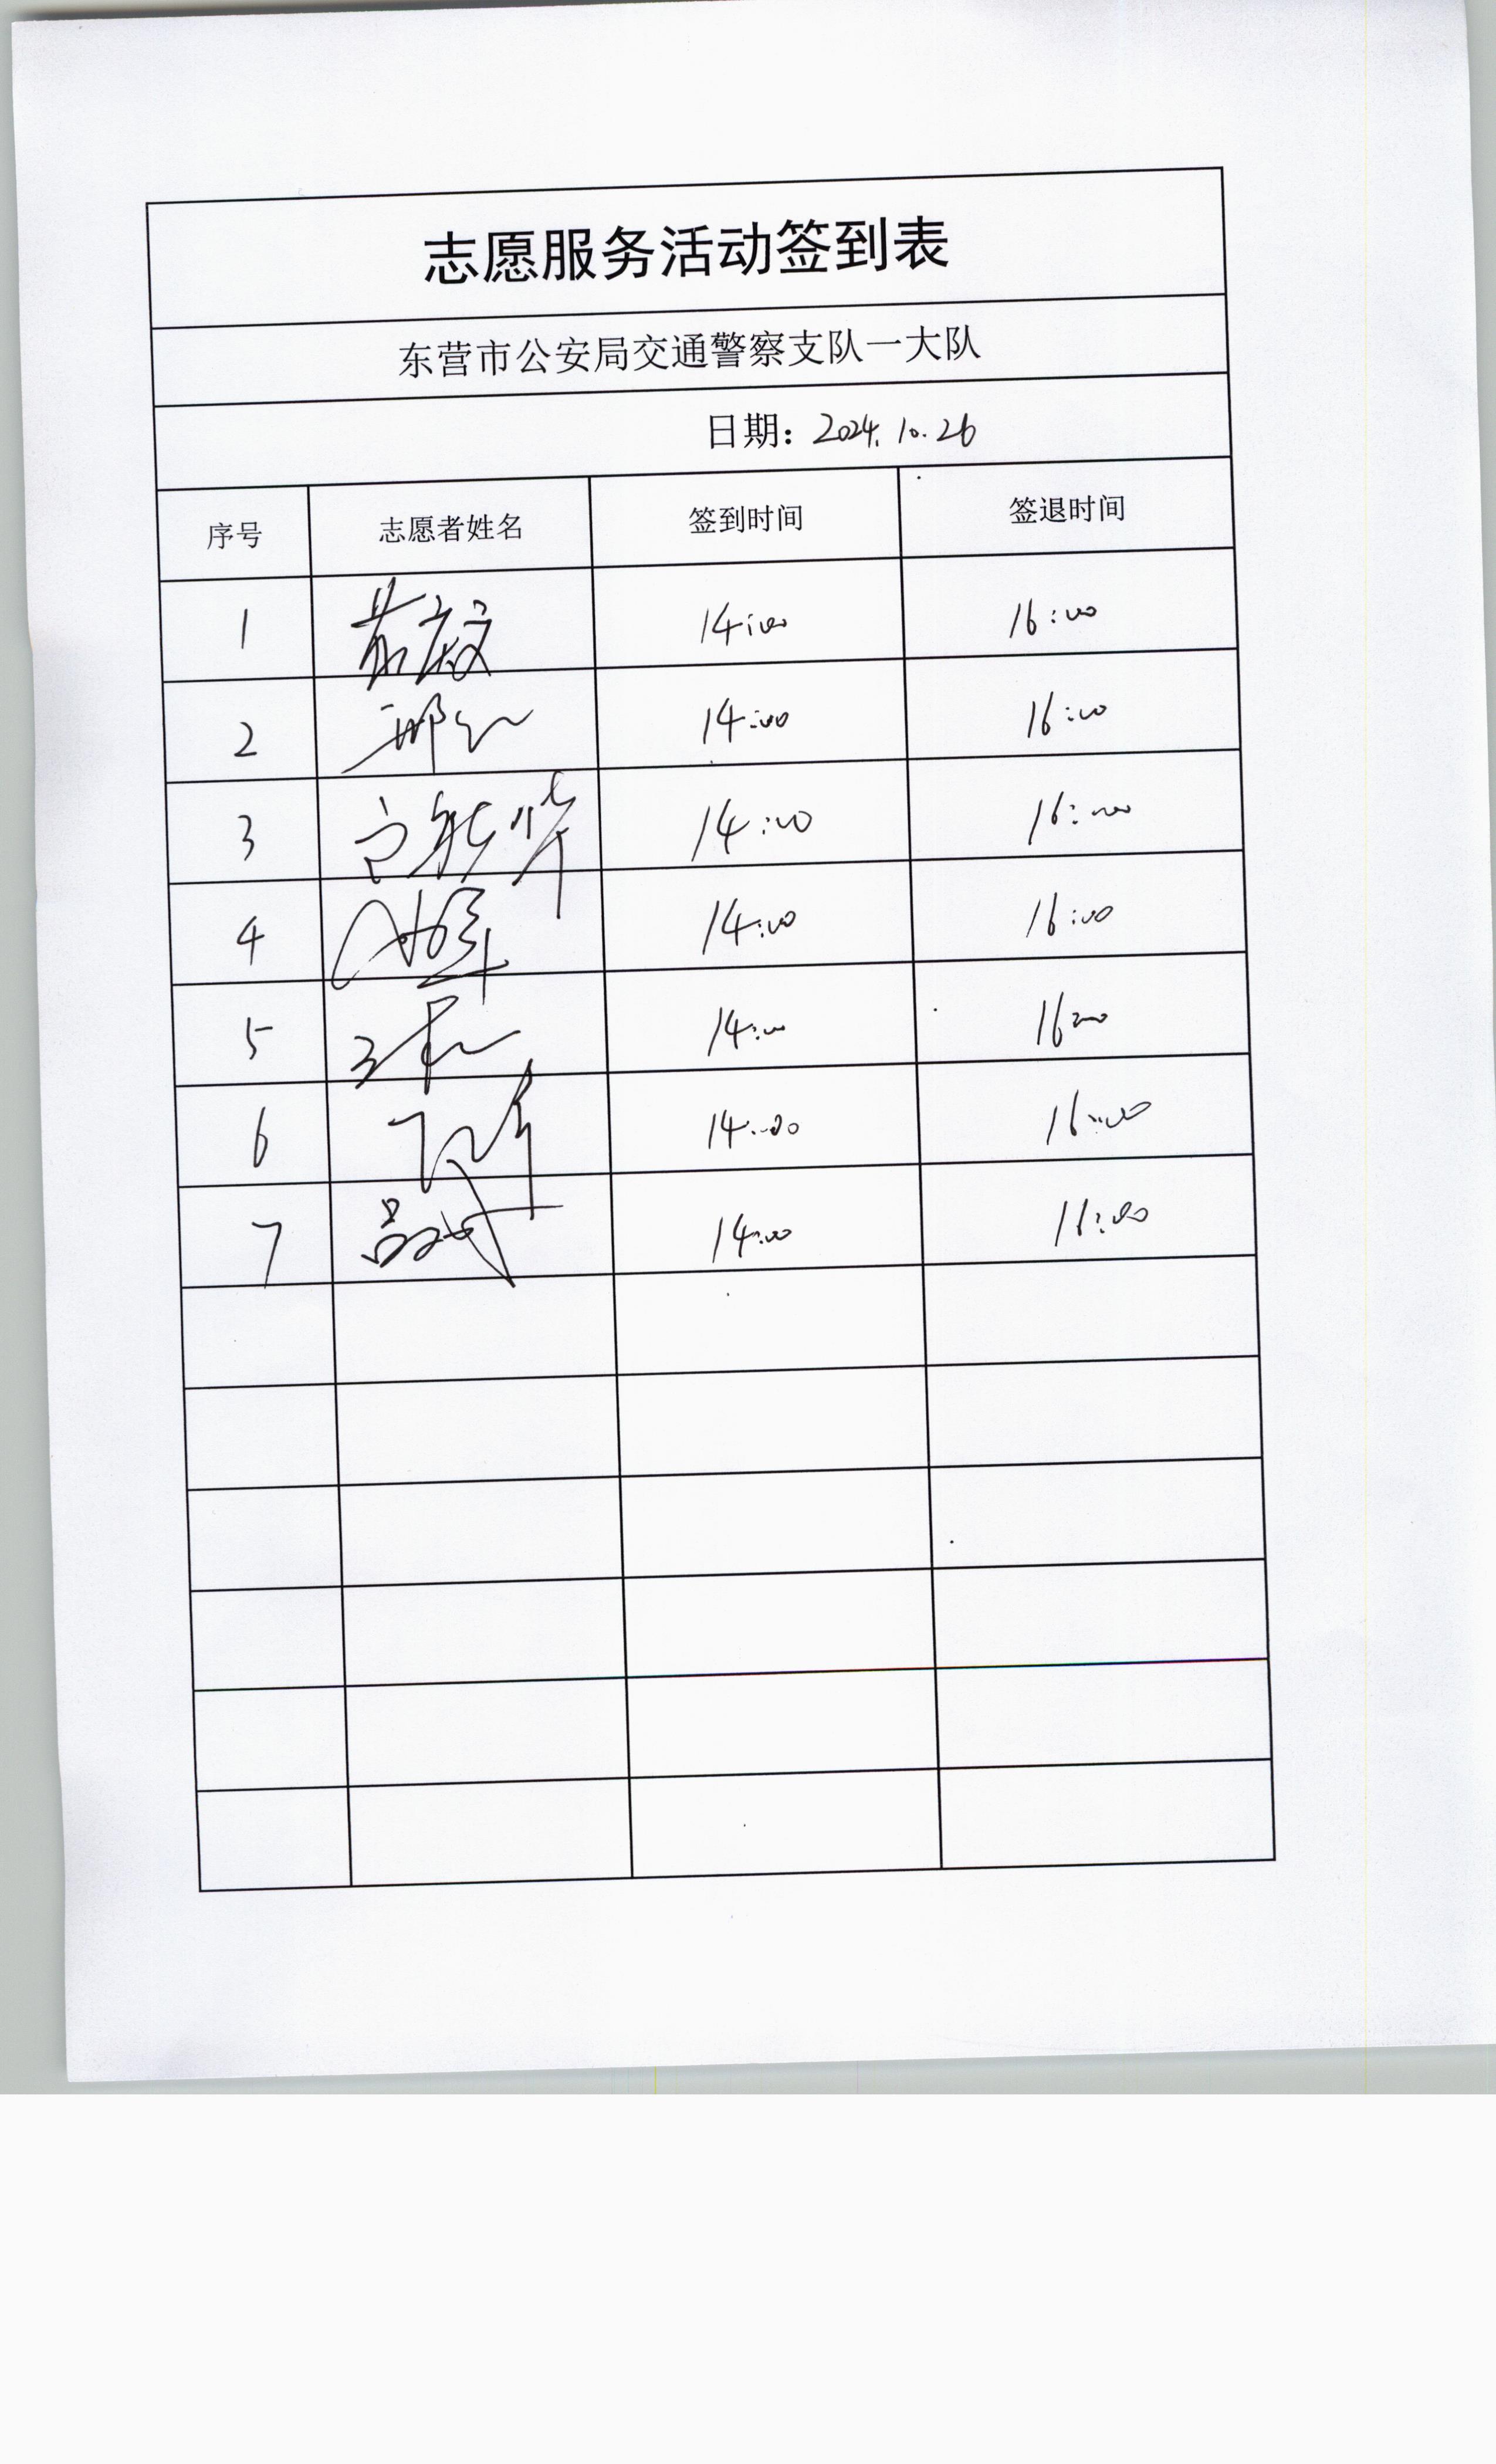 志愿服务活动签到表
东营市公安局交通警察支队一大队
日期：2024.10.26
序号 志愿者姓名 签到时间 签退时间
1 14:00 16:00
2 14:00 16:00
3 14:00 16:00
4 14:00 16:00
5 14:00 16:00
6 14:00 16:00
7 14:00